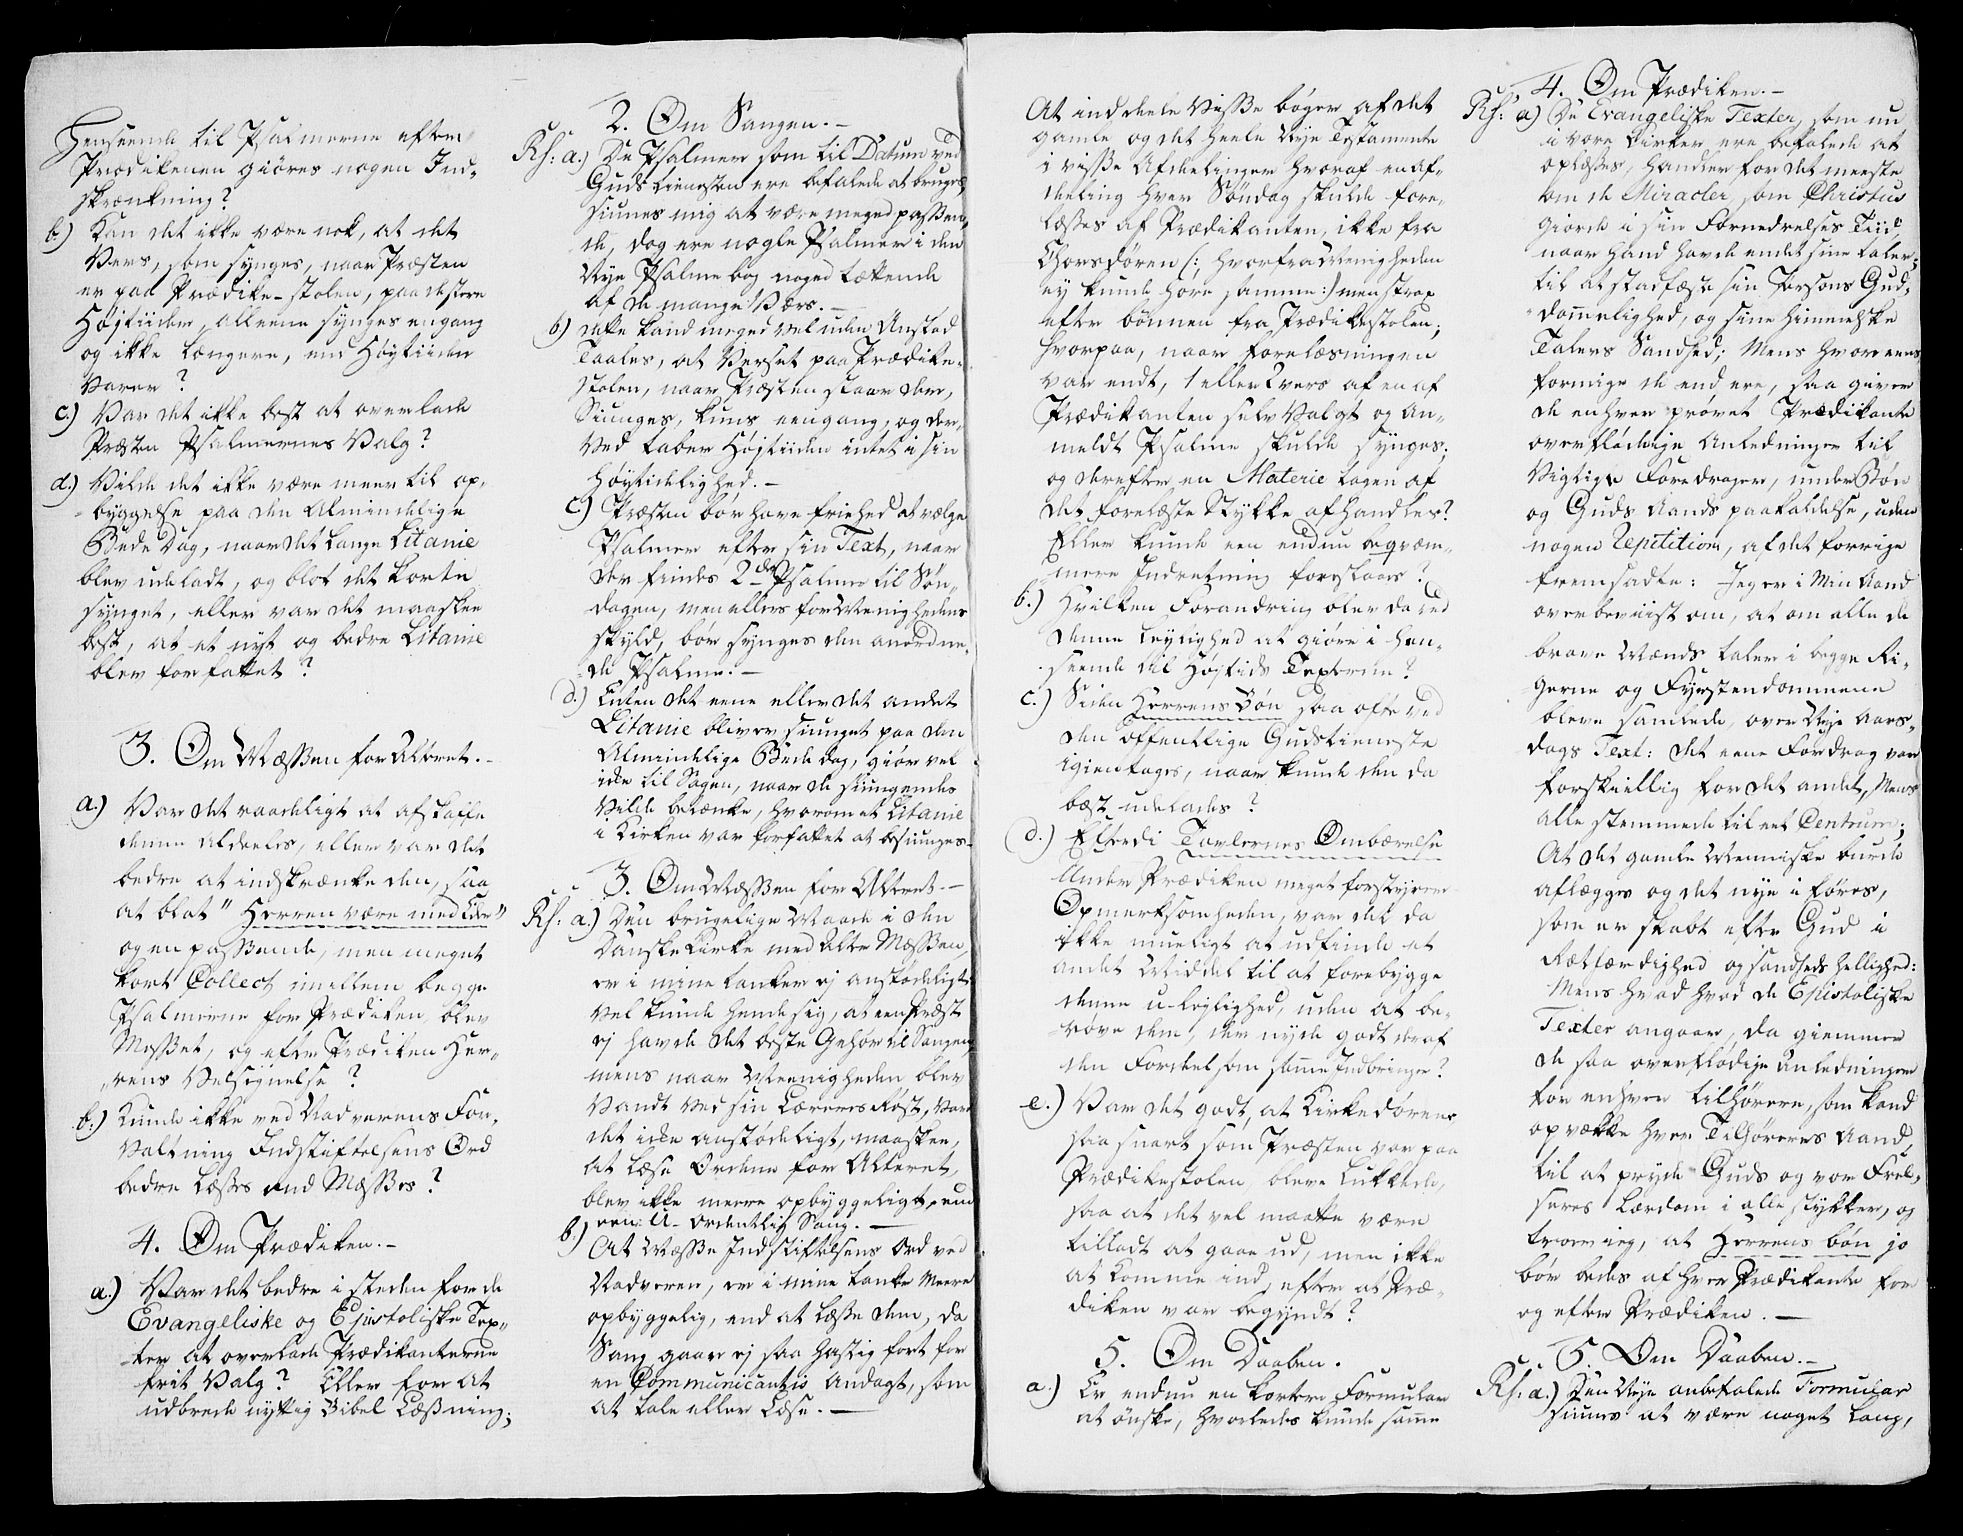 Henseende til Psalmerne efter
Prædikenen giöres nogen Ind-
skrænkning?
b.) Kan det ikke være nok, at det
Vers, som synges, naar Præsten
er paa Prædike-stolen, paa de store
Højtiider, alleene synges engang
og ikke længere, end Höytiiden
varer?
c.) Var det ikke best at overlade
Præsten Psalmernes Valg?
d.) Vilde det ikke være meer til op-
byggelse paa den Almindelige
Bede Dag, naar det lange Litanie
blev udeladt, og blot det korte
synget, eller var det maaskee
best, at et nyt og bedre Litanie
blev forfattet?
3. Om Mæssen for Alteret.-
a.) Var det raadeligt at afskaffe
denne aldeeles, eller var det
bedre at indskrænke den, saa
at blot "Herren være med Eder"
og en passende, men meget
kort Collect imellem begge
Psalmerne for Prædiken, blev
Messet, og efter Prædiken Her-
rens Velsignelse?
b.) Kunde ikke ved Nadverens For-
valtning Indstiftelsens Ord
bedre læses end Mæsses?
4. Om Prædiken.-
a.) Var det bedre i steden for de
Evangeliske og Epistoliske Tex-
ter at overlade Prædikanterne
frit Valg? Eller for at
udbrede nyttig Bibel Læsning;
2. Om Sangen.-
Rs: a.) De Psalmer som til Datum ved
Guds tienesten ere befalede at bruges
siunes mig at være meged passen-
de, dog ere nogle Psalmer i den
Nye Psalme bog noged lækende
af de mange Vers.-
b) dete kand meged vel uden Anstød
Taales, at Verset paa Prædike-
stolen, naar Præsten staar der,
Siunges, kuns eengang, og der-
ved taber Højtiiden intet i sin
höytidelighed.-
c) Præsten bör have friehed at vælge
Psalmer efter sin Text, naar
der findes 2de Psalmer til Søn-
dagen, men ellers for Meenighedens
skyld, bör synges den anordne-
de Psalme.-
d.) Enten det eene eller det andet
Litanie bliver siunget paa den
Almindelige Bede dag, giör vel
icke til Sagen, naar de siungendes
vilde betænke, hvorom et Litanie
i Kirken var forfattet at besiunges-
3. Om Mæssen for Alteret.-
Rs: a.) Den brugelige Maade i den
Danske Kirke med Alter Mæssen,
er i mine tanker ej anstödeligt
vel kunde hende sig, at een Præst
ej havde det beste Gehör til Sangen,
mens naar Meenigheden blev
Vandt ved sin Lærerens Röst, var
det icke anstødeligt, maaskee,
At læse Ordene for Alteret,
blev ikke meere opbyggeligt, end
een U-ordentlig Sang.-
b.) At Mæsse Indstiftelsens Ord ved
Nadveren, er i mine tanke Meere
opbyggelig, end at læse dem, da
Sang gaar ej saa hastig fort for
en Communicantis Andagt, som
at tale eller læse.-
At inddeele visse bøger af det
gamle og det heele Nye Testamente
i visse Afdeelinger hvoraf en af-
deeling hver Søndag skulde fore-
læses af Prædikanten, ikke fra
Chorsdören (:, hvorfra Menigheden
ey kunde høre samme:) men strax
efter bönnen fra Prædikestolen;
hvorpaa, naar forelæsningen
var endt, 1 eller 2 vers af en af
Prædikanten selv valgt og an-
meldt Psalme skulde synges,
og derefter en Materie tagen af
det forelæste Stykke afhandles?
Eller kunde een endnu beqvæm-
mere Indretning foreslaaes?
b.) Hvilken Forandring blev da ved
denne leylighed at giöre i hen-
seende til Højtids Texterne?
c.) Siden Herrens Bön saa ofte ved
den offentlige Gudstieneste
igientages, naar kunde den da
best udelades?
d.) Efterdi Tavlernes Ombærelse
Under Prædiken meget forstyrrer
Opmerksomheden, var det da
ikke mueligt at udfinde et
andet Middel til at forebygge
denne u-lejlighed, uden at be-
röve dem, der nyde godt deraf
den Fordeel som samme Indbringer?
e.) Var det godt, at Kirkedörene
saa snart som Præsten var paa
Prædikestolen, bleve lukkede,
saa at det vel maatte være
tilladt at gaae ud, men ikke
at komme ind, efter at Præ-
diken var begyndt?
5. Om Daaben.
a.) Er endnu en kortere Formular
at ønske, hvorledes kunde samme
4. Om Prædiken.-
Rs: a) De Evangeliske Texter, som nu
i vore Kirker ere befalede at
oplæses, handler for det meeste
om de Miracler, som Christus
giorde i sin Fornedrelses Tiid,
naar hand havde endet sine taler,
til at stadfæste sin Persons Gud-
dommelighed, og sine himmelske
Talers Sandhed; Mens hvor eens
formige de end ere, saa giver
de enhver prövet Prædikante
overflødige Anledninger til
Vigtige Foredrager, under Bön
og Guds Aands paakaldelse, uden
nogen Repetition, af det forrige
fremsadte: Jeg er i Min Aand
overbeviist om, at om alle de
brave Mænds taler i begge Ri-
gerne og Fyrstendommene
bleve samlede, over Nye Aars-
dags Text: det eene Fordrag var
forskiellig for det andet, Mens
alle stemmede til eet Centrum;
At det gamle Menniske burde
aflægges og det nye iføres,
som er skabt efter Gud i
Retfærdighed og sandheds hellighed:
Mens hvad hvad de Epistoliske
Texter angaar, da giemmer
de saa overflödige Anledninger
for enhver tilhörere, som kand
opvække hver Tilhöreres Aand,
til at pryde Guds og vor Frel-
seres Lærdom i alle stykker, og
troer ieg, at Herrens bön jo
bör bedes af hver Prædikante for
og efter Prædiken.-
5. Om Daaben.-
Rs: a.) Den Nye anbefalede Formular
siunes at være noget lang,